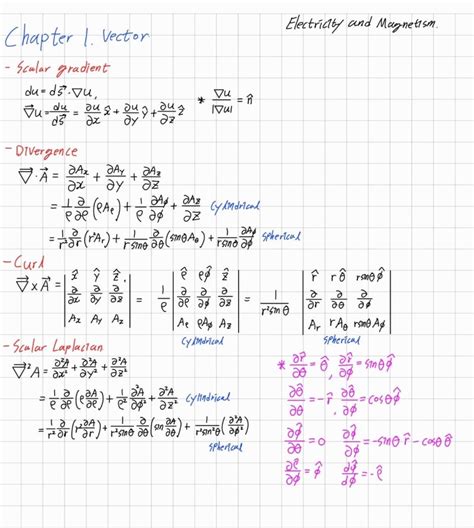 Electricity and Magnetism.
Chapter 1. Vector
- Scalar gradient
du = ds⃗ · ∇u,
∇⃗u = du/ds⃗ = ∂u/∂x x̂ + ∂u/∂y ŷ + ∂u/∂z ẑ * ∇u/|∇u| = n̂
- Divergence
∇⃗ · A⃗ = ∂Ax/∂x + ∂Ay/∂y + ∂Az/∂z
= 1/ρ ∂/∂ρ (ρAρ) + 1/ρ ∂Aϕ/∂ϕ + ∂Az/∂z Cylindrical
= 1/r² ∂/∂r (r²Ar) + 1/rsinθ ∂/∂θ (sinθAθ) + 1/rsinθ ∂Aϕ/∂ϕ spherical
- Curl
∇⃗ × A⃗ = | x̂ ŷ ẑ ; ∂/∂x ∂/∂y ∂/∂z ; Ax Ay Az | = 1/ρ | ρ̂ ρϕ̂ ẑ ; ∂/∂ρ ∂/∂ϕ ∂/∂z ; Aρ ρAϕ Az | = 1/r²sinθ | r̂ rθ̂ rsinθϕ̂ ; ∂/∂r ∂/∂θ ∂/∂ϕ ; Ar rAθ rsinθAϕ |
Cylindrical spherical
- Scalar Laplacian
∇⃗²A = ∂²A/∂x² + ∂²A/∂y² + ∂²A/∂z²
= 1/ρ ∂/∂ρ (ρ ∂A/∂ρ) + 1/ρ² ∂²A/∂ϕ² + ∂²A/∂z² Cylindrical
= 1/r² ∂/∂r (r² ∂A/∂r) + 1/r²sinθ ∂/∂θ (sinθ ∂A/∂θ) + 1/r²sin²θ (∂²A/∂ϕ²)
spherical
* ∂r̂/∂θ = θ̂, ∂r̂/∂ϕ = sinθϕ̂
∂θ̂/∂θ = -r̂, ∂θ̂/∂ϕ = cosθϕ̂
∂ϕ̂/∂θ = 0 ∂ϕ̂/∂ϕ = -sinθ r̂ - cosθ θ̂
∂ρ̂/∂ϕ = ϕ̂ dϕ̂/dϕ = -ρ̂